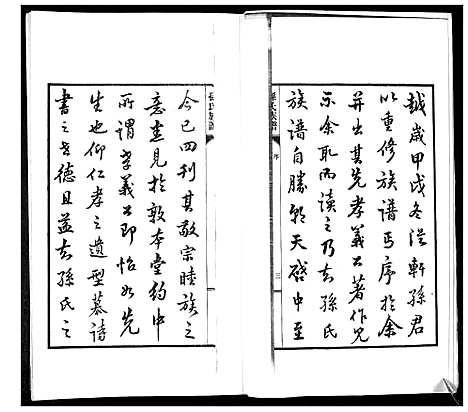 越歲甲戌冬漢軒孫君
以重修族譜丐序於余
并出其先孝義公著作見
示余取而讀之乃知孫氏
族譜自勝朝天啓中至
孫氏族譜
序
三
今已四刊其敬宗睦族之
意查見於敦本堂約中
所謂孝義公即怡如先
生也仰仁孝之遺型慕詩
書之世德且益知孫氏之